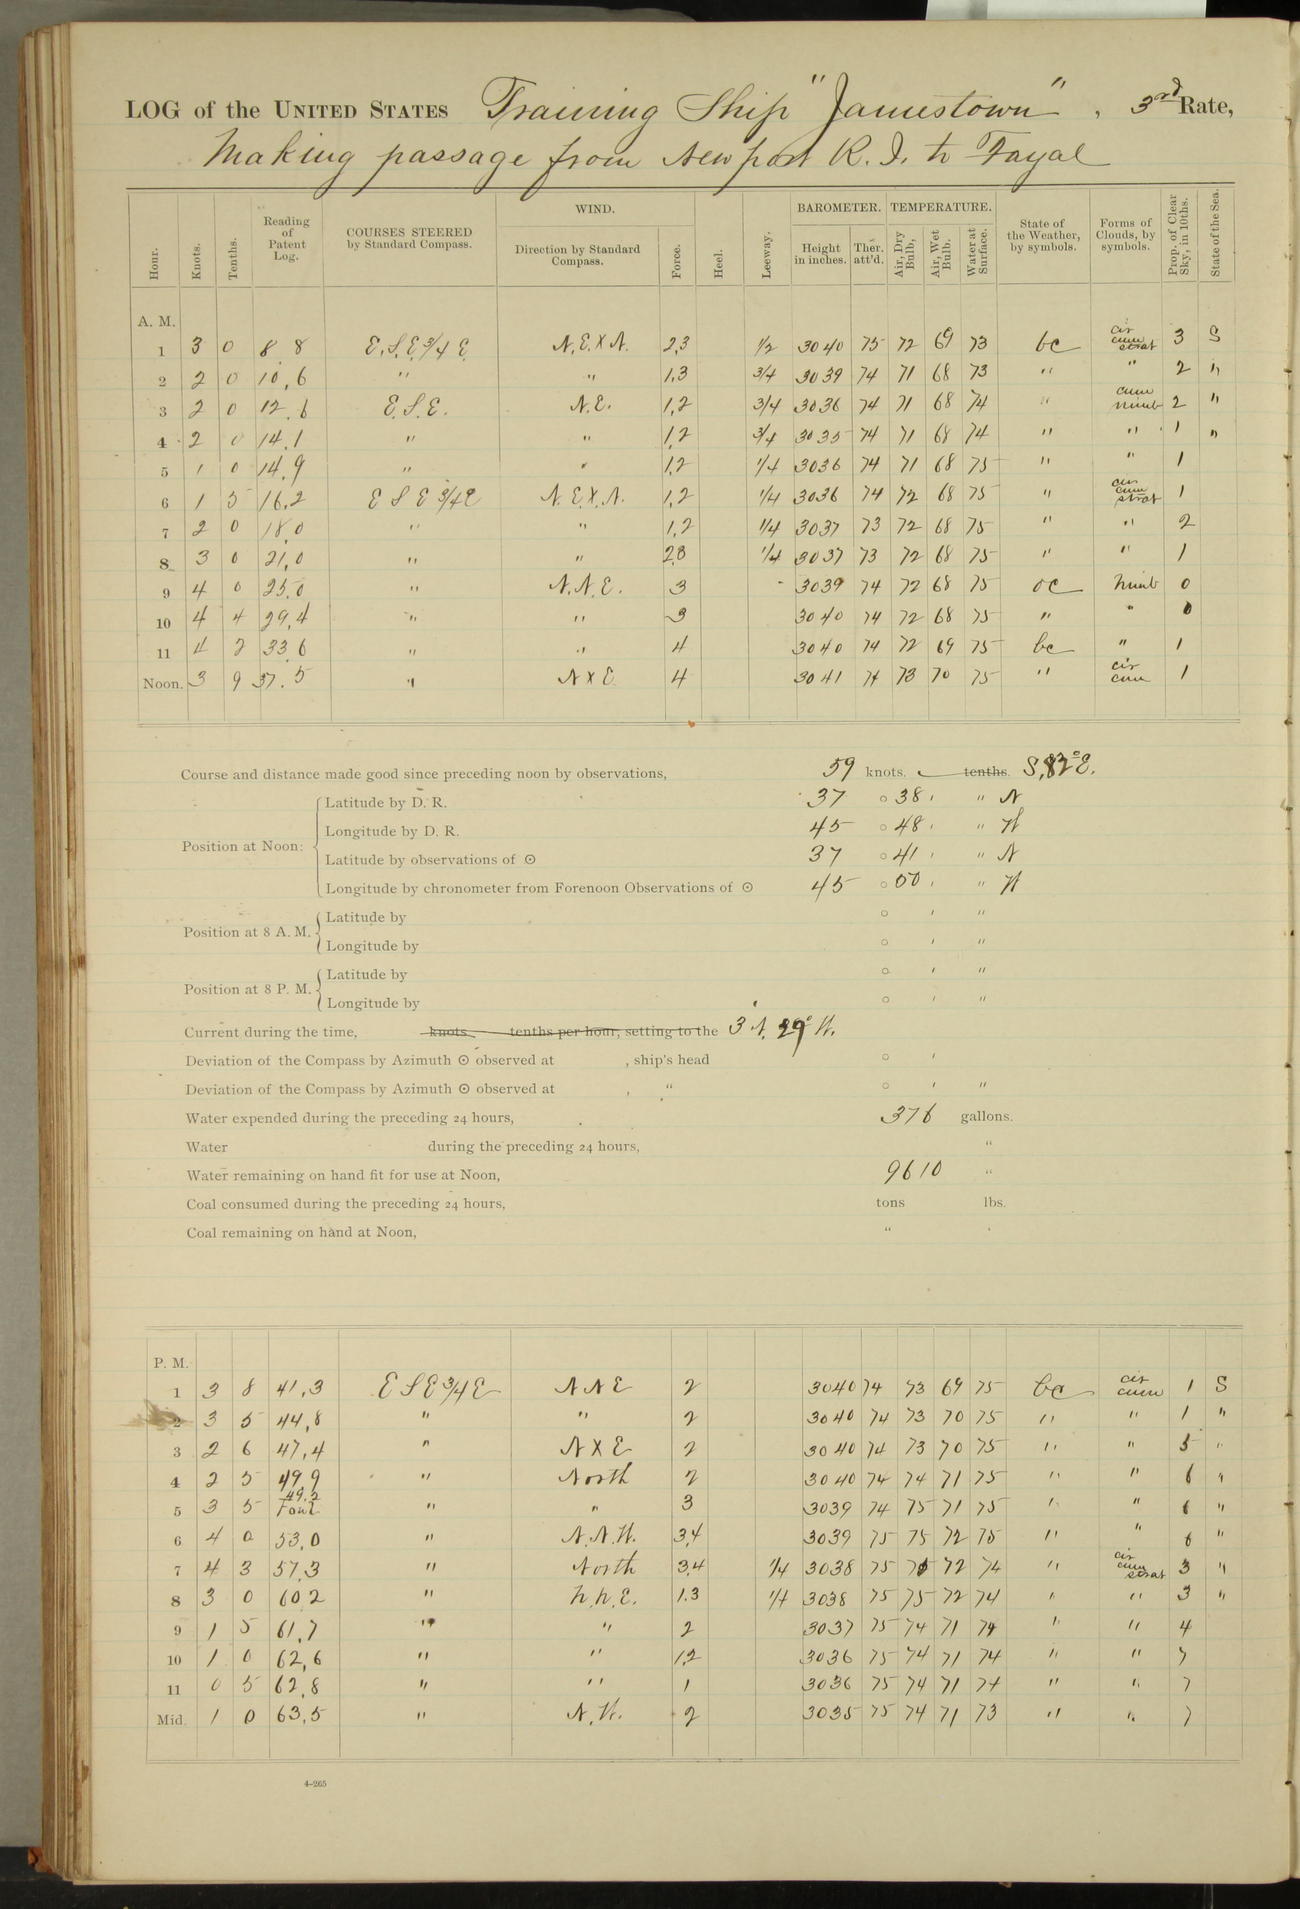 LOG of the UNITED STATES Training Ship "Jamestown", 3rd Rate,
Making passage from Newport R. I. to Fayal
Hour. Knots. Tenths. Reading of Patent Log. COURSES STEERED by Standard Compass. WIND. Direction by Standard Compass. Force. Heel. Leeway. BAROMETER. Height in inches. Ther. att'd. TEMPERATURE. Air, Dry Bulb, Air, Wet Bulb. Water at Surface. State of the Weather, by symbols. Forms of Clouds, by symbols. Prop. of Clear Sky, in 10ths. State of the Sea.
A. M.
1 3 0 8.8 E.S.E. 3/4 E. N.E. X N. 2,3 1/2 3040 75 72 69 73 bc cir cum strat 3 S
2 2 0 10,6 " " 1,3 3/4 3039 74 71 68 73 " " 2 "
3 2 0 12.6 E.S.E. N.E. 1,2 3/4 3036 74 71 68 74 " cum nimb 2 "
4 2 0 14.1 " " 1,2 3/4 3035 74 71 68 74 " " 1 "
5 1 0 14.9 " " 1,2 1/4 3036 74 71 68 75 " " 1
6 1 5 16,2 E S E 3/4 E N.E. X. N. 1,2 1/4 3036 74 72 68 75 " cir cum strat 1
7 2 0 18,0 " " 1,2 1/4 3037 73 72 68 75 " " 2
8 3 0 21,0 " " 2,3 1/4 3037 73 72 68 75 " " 1
9 4 0 25,0 " N.N.E. 3 3039 74 72 68 75 oc Nimb 0
10 4 4 29,4 " " 3 3040 74 72 68 75 " " 0
11 4 2 33.6 " " 4 3040 74 72 69 75 bc " 1
Noon. 3 9 37.5 " N X E 4 3041 74 73 70 75 " cir cum 1
Course and distance made good since preceding noon by observations, 59 knots. tenths. S, 82° E.
Position at Noon:
Latitude by D. R. 37 ° 38 ' " N
Longitude by D. R. 45 ° 48 ' " W
Latitude by observations of ☉ 37 ° 41 ' " N
Longitude by chronometer from Forenoon Observations of ☉ 45 ° 50 ' " W
Position at 8 A. M.
Latitude by ° ' "
Longitude by ° ' "
Position at 8 P. M.
Latitude by ° ' "
Longitude by ° ' "
Current during the time, knots, tenths per hour, setting to the 3' N. 29° W.
Deviation of the Compass by Azimuth ☉ observed at , ship's head ° '
Deviation of the Compass by Azimuth ☉ observed at , " ° ' "
Water expended during the preceding 24 hours, 376 gallons.
Water during the preceding 24 hours, "
Water remaining on hand fit for use at Noon, 9610 "
Coal consumed during the preceding 24 hours, tons lbs.
Coal remaining on hand at Noon, " "
P. M.
1 3 8 41,3 E S E 3/4 E N N E 2 3040 74 73 69 75 bc cir cum 1 S
2 3 5 44,8 " " 2 3040 74 73 70 75 " " 1 "
3 2 6 47,4 " N X E 2 3040 74 73 70 75 " " 5 "
4 2 5 49 9 " North 2 3040 74 74 71 75 " " 6 "
5 3 5 49.2 Foul " " 3 3039 74 75 71 75 " " 6 "
6 4 0 53,0 " N.N.W. 3,4 3039 75 75 72 75 " " 6 "
7 4 3 57,3 " North 3,4 1/4 3038 75 75 72 74 " cir cum strat 3 "
8 3 0 60 2 " N.N.E. 1.3 1/4 3038 75 75 72 74 " " 3 "
9 1 5 61,7 " " 2 3037 75 74 71 74 " " 4
10 1 0 62,6 " " 1,2 3036 75 74 71 74 " " 7
11 0 5 62,8 " " 1 3036 75 74 71 74 " " 7
Mid. 1 0 63,5 " N.W. 2 3035 75 74 71 73 " " 7
4-265